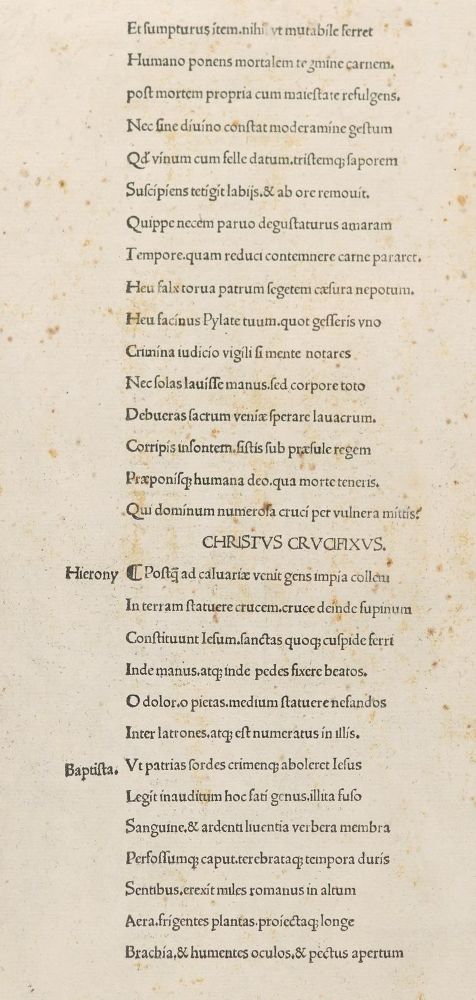 Et sumpturus item.nihil vt mutabile ferret
Humano ponens mortalem tegmine carnem.
post mortem propria cum maiestate refulgens.
Nec sine diuino constat moderamine gestum
Qđ vinum cum felle datum.tristemqꝫ saporem
Suscipiens tetigit labijs.& ab ore remouit.
Quippe necem paruo degustaturus amaram
Tempore.quam reduci contemnere carne pararet.
Heu falx torua patrum segetem cæsura nepotum.
Heu facinus Pylate tuum.quot gesseris vno
Crimina iudicio vigili si mente notares
Nec solas lauisse manus.sed corpore toto
Debueras sacrum veniæ sperare lauacrum.
Corripis insontem.sistis sub præsule regem
Præponisqꝫ humana deo.qua morte teneris.
Qui dominum numerosa cruci per vulnera mittis?
CHRISTVS CRVCIFIXVS.
Hierony ⁋ Postq̄ ad caluariæ venit gens impia collem
In terram statuere crucem.cruce deinde supinum
Constituunt Iesum.sanctas quoqꝫ cuspide ferri
Inde manus.atqꝫ inde pedes fixere beatos.
O dolor.o pietas.medium statuere nefandos
Inter latrones.atqꝫ est numeratus in illis.
Baptista. Vt patrias sordes crimenqꝫ aboleret Iesus
Legit inauditum hoc fati genus.illita fuso
Sanguine.& ardenti liuentia verbera membra
Perfossumqꝫ caput.terebrataqꝫ tempora duris
Sentibus.erexit miles romanus in altum
Aera.frigentes plantas.proiectaqꝫ longe
Brachia.& humentes oculos.& pectus apertum